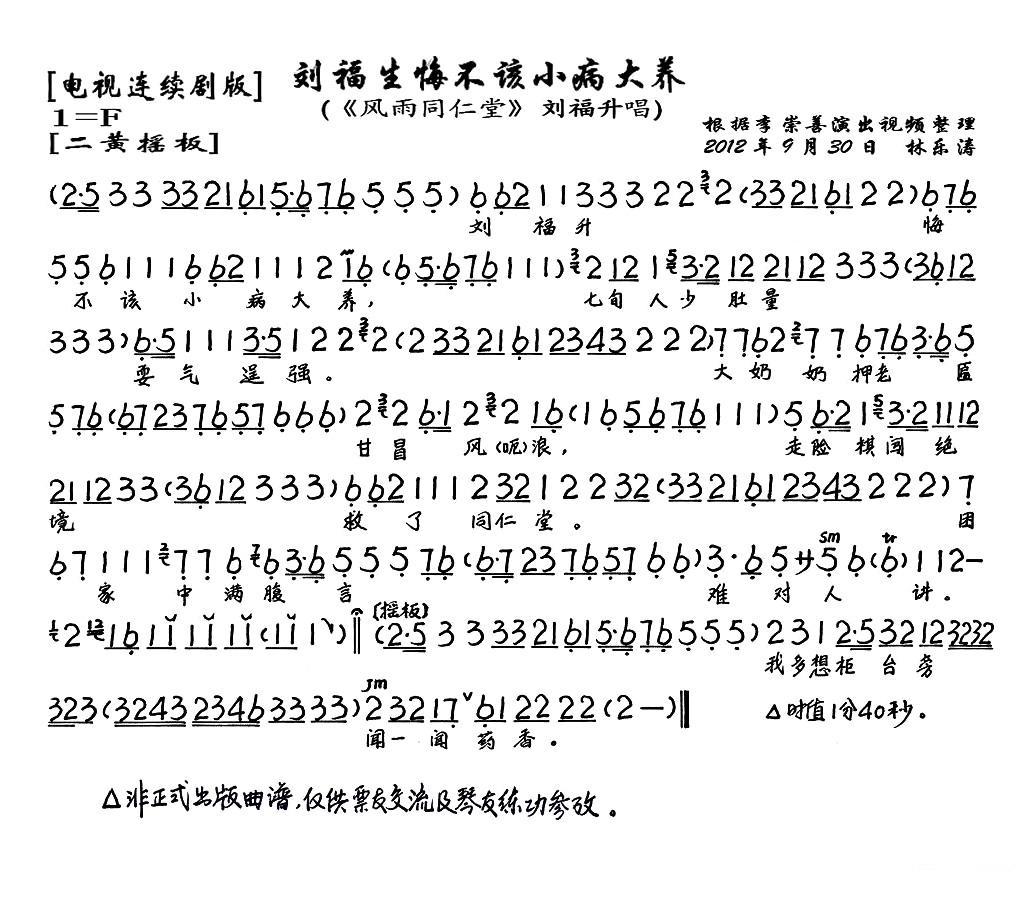 [电视连续剧版]
刘福生悔不该小病大养
(《风雨同仁堂》刘福升唱)
1=F
[二黄摇板]
根据李崇善演出视频整理
2012年9月30日 林乐涛
(2·5 33 3321615·676 5 5 5) 662113332232(33216122) 676
刘福升 悔
5561116621112i6(65·676111)3212153·2122112333(3612
不该小病大养, 七旬人少肚量
333)6·51113·512232(23321612343222)77622776763·65
要气逞强。 大奶奶押老匾
576(67237657666)2326·123216(165676111)56·2153·21112
甘昌风(呃)浪, 走脸棋闯绝
211233(3612333)662111232122232(332161234322 2)7
境 救了同仁堂。 团
671112776763·655576(6·72376576 6)3·65サ56(6)112—
sm tr
家中满腹言 难对人讲。
[摇板]
2161111111(111)(2·5333321615·676555)23122·532123232
我多想柜台旁
323(3243234633 33)2321761222 2(2—)
Jm
闻一闻药香。
△时值1分40秒。
△非正式出版曲谱,仅供票友交流及琴友练功参改。